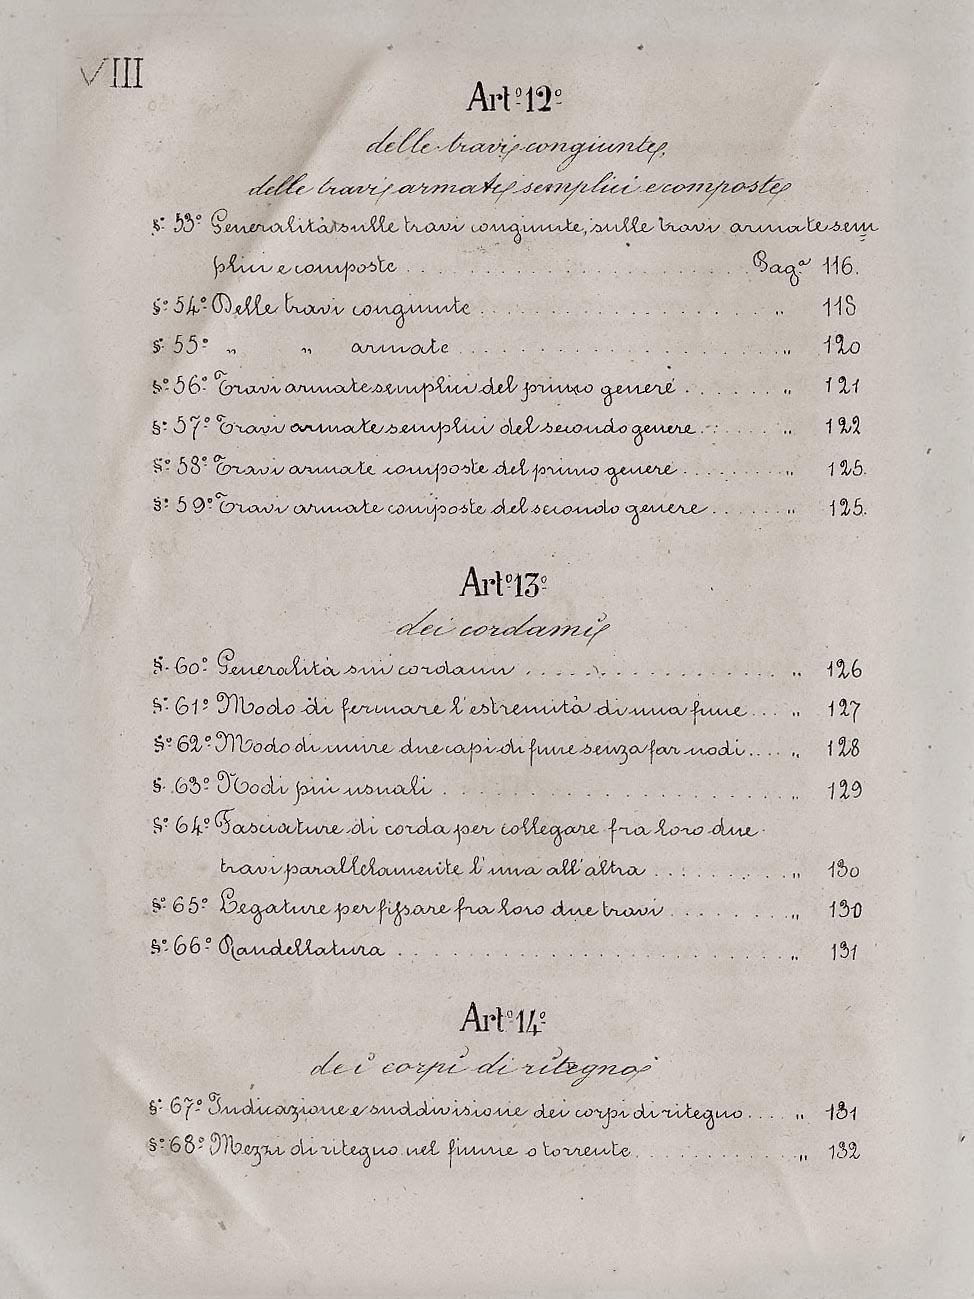 VIII
Art.º 12º
delle travi congiunte,
delle travi armate semplici e composte
§º 53º Generalità sulle travi congiunte, sulle travi armate sem
plici e composte . . . . . . . . . . . . . . . . . . Pagª 116.
§º 54º Delle travi congiunte . . . . . . . . . . . . . . . . „ 118
§º 55º „ „ armate . . . . . . . . . . . . . . . . „ 120
§º 56º Travi armate semplici del primo genere . . . . . . „ 121
§º 57º Travi armate semplici del secondo genere . . . . . „ 122
§º 58º Travi armate composte del primo genere . . . . . . „ 125.
§º 59º Travi armate composte del secondo genere . . . . . „ 125.
Art.º 13º
dei cordami
§. 60º Generalità sui cordami . . . . . . . . . . . . . . „ 126
§º 61º Modo di fermare l'estremità di una fune . . . „ 127
§º 62º Modo di unire due capi di fune senza far nodi . . . . „ 128
§. 63º Nodi più usuali . . . . . . . . . . . . . . . . . . „ 129
§º 64º Fasciature di corda per collegare fra loro due
travi parallelamente l'una all'altra . . . . . . . . „ 130
§º 65º Legature per fissare fra loro due travi . . . . . . . „ 130
§º 66º Randellatura . . . . . . . . . . . . . . . . . . . . „ 131
Art.º 14º
dei corpi di ritegno
§º 67º Indicazione e suddivisione dei corpi di ritegno . . . . „ 131
§º 68º Mezzi di ritegno nel fiume o torrente . . . . . . . . . „ 132